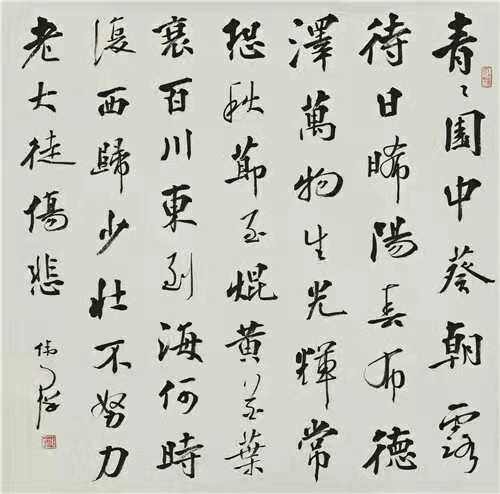 青〻園中葵朝露
待日晞陽春布德
澤萬物生光輝常
恐秋節至焜黃華葉
衰百川東到海何時
復西歸少壯不努力
老大徒傷悲